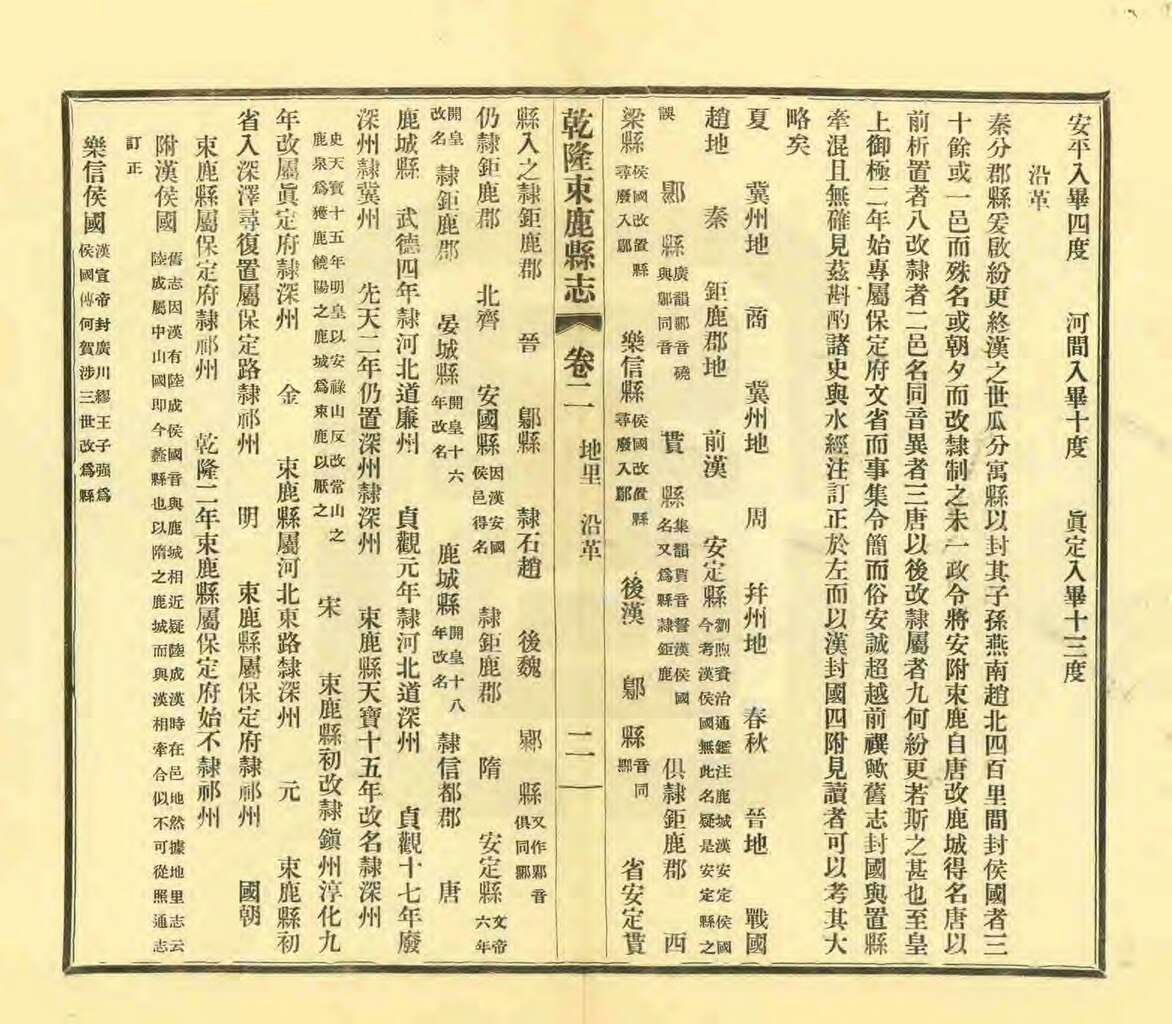 安平入畢四度　河間入畢十度　眞定入畢十三度
沿革
秦分郡縣爰啟紛更終漢之世瓜分寓縣以封其子孫燕南趙北四百里間封侯國者三
十餘或一邑而殊名或朝夕而改隸制之未一政令將安附束鹿自唐改鹿城得名唐以
前析置者八改隸者二邑名同音異者三唐以後改隸屬者九何紛更若斯之甚也至皇
上御極二年始專屬保定府文省而事集令簡而俗安誠超越前禩歟舊志封國與置縣
牽混且無確見茲斟酌諸史與水經注訂正於左而以漢封國四附見讀者可以考其大
略矣
夏　冀州地　商　冀州地　周　幷州地　春秋　晉地　戰國
趙地　秦　鉅鹿郡地　前漢　安定縣劉煦資治通鑑注鹿城漢安定侯國今考漢侯國無此名疑是安定縣之
誤　鄡　縣廣韻鄡音磽與鄥同音　貰　縣集韻貰音誓漢侯國名又爲縣隸鉅鹿　俱隸鉅鹿郡　西
梁縣侯國改置縣尋廢入鄡　樂信縣侯國改置縣尋廢入鄡　後漢　鄡　縣音同鄡　省安定貰
乾隆束鹿縣志　卷二　地里　沿革　二
縣入之隸鉅鹿郡　晉　鄡縣　隸石趙　後魏　鄡　縣又作鄡音俱同鄡
仍隸鉅鹿郡　北齊　安國縣因漢安國侯邑得名　隸鉅鹿郡　隋　安定縣文帝六年
開皇改名　隸鉅鹿郡　晏城縣開皇十六年改名　鹿城縣開皇十八年改名　隸信都郡　唐
鹿城縣　武德四年隸河北道廉州　貞觀元年隸河北道深州　貞觀十七年廢
深州隸冀州　先天二年仍置深州隸深州　束鹿縣天寶十五年改名隸深州
史天寶十五年明皇以安祿山反改常山之鹿泉爲獲鹿饒陽之鹿城爲束鹿以厭之　宋　束鹿縣初改隸鎭州淳化九
年改屬眞定府隸深州　金　束鹿縣屬河北東路隸深州　元　束鹿縣初
省入深澤尋復置屬保定路隸祁州　明　束鹿縣屬保定府隸祁州　國朝
束鹿縣屬保定府隸祁州　乾隆二年束鹿縣屬保定府始不隸祁州
附漢侯國　舊志因漢有陸成侯國音與鹿城相近疑陸成漢時在邑地然據地里志云陸成屬中山國卽今蠡縣也以隋之鹿城而與漢相牽合似不可從照通志
訂正
樂信侯國漢宣帝封廣川繆王子强爲侯國傳何賀涉三世改爲縣